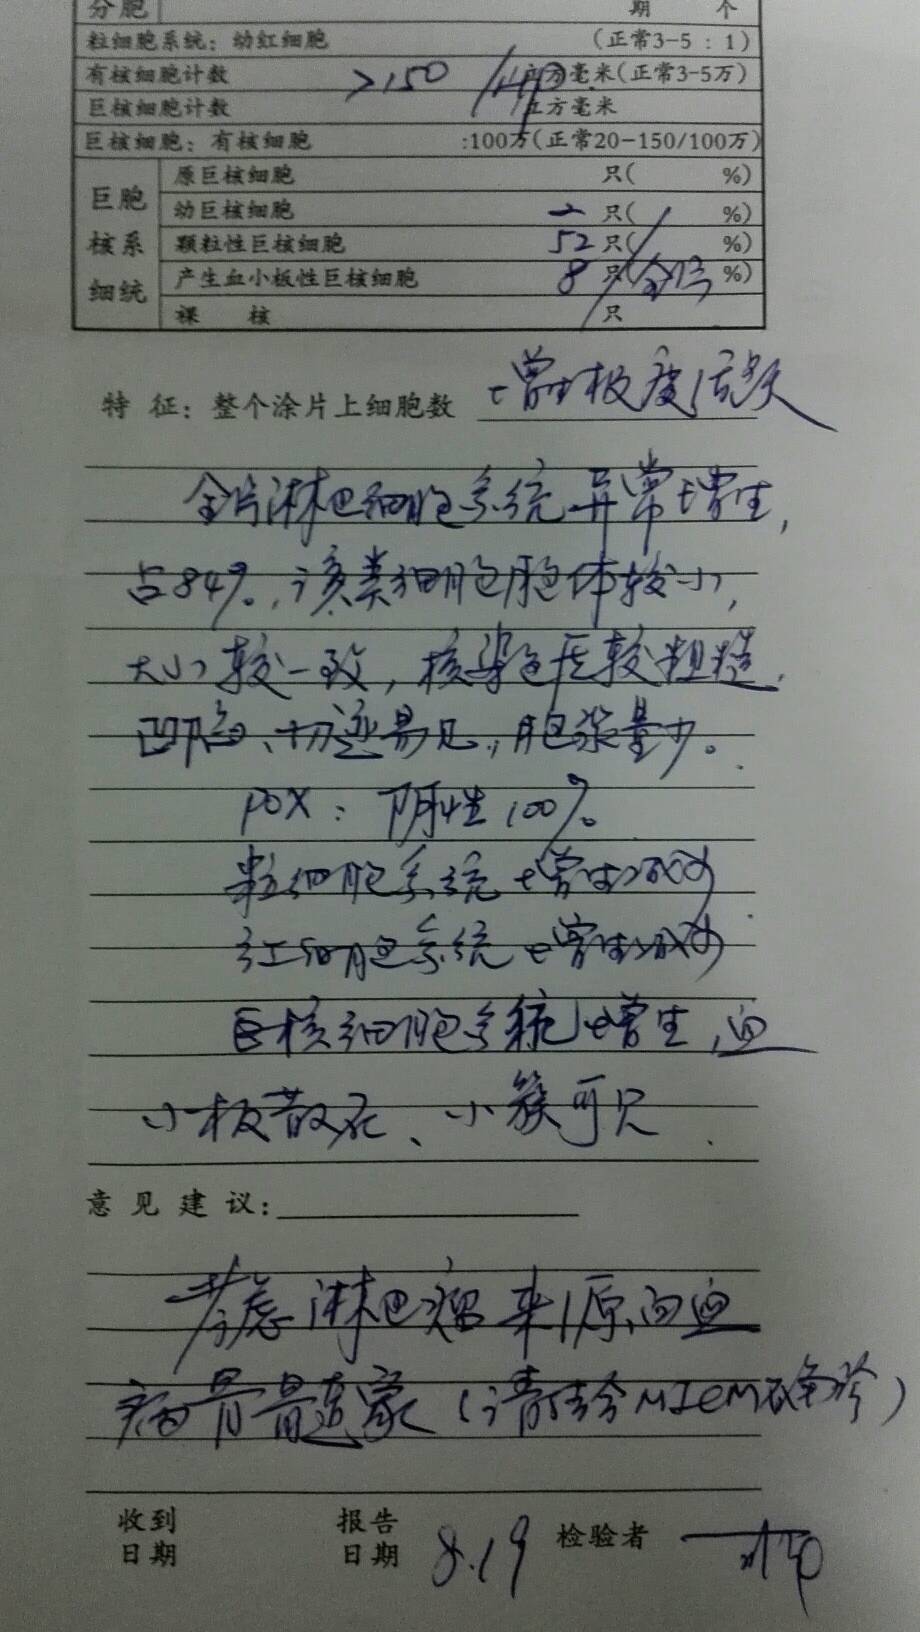 分胞 期 个
粒细胞系统：幼红细胞 （正常3-5：1）
有核细胞计数 >150 /立方毫米（正常3-5万）
巨核细胞计数 立方毫米
巨核细胞：有核细胞 :100万（正常20-150/100万）
巨胞核系细统
原巨核细胞 只（ %）
幼巨核细胞 只（ %）
颗粒性巨核细胞 52 只（ %）
产生血小板性巨核细胞 8 只 %）
裸 核 只
特 征：整个涂片上细胞数 增生极度活跃
全片淋巴细胞系统异常增生，
占84%。该类细胞胞体较小，
大小较一致，核染色质较粗糙，
凹陷、切迹易见，胞浆量少。
POX：阴性100%。
粒细胞系统增生减少
红细胞系统增生减少
巨核细胞系统增生，血
小板散在、小簇可见
意 见 建 议：
考虑淋巴瘤 白血
病骨髓象（请结合MICM确诊）
收到日期 报告日期 8.19 检验者